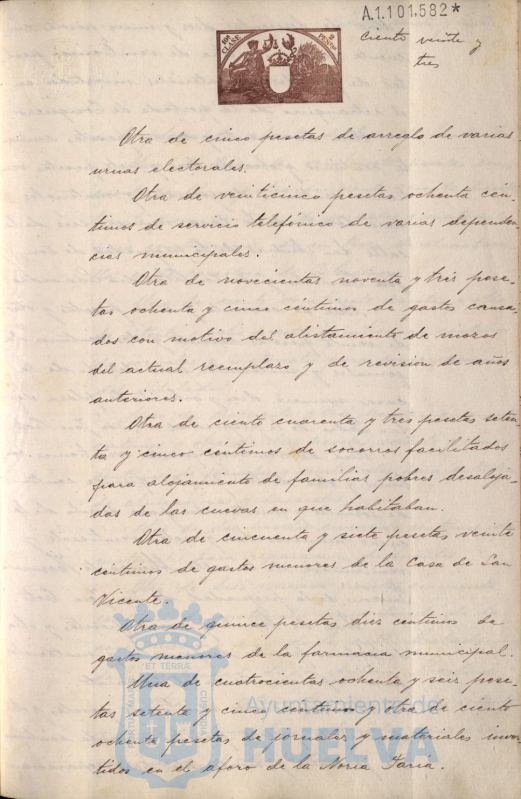 A.1.101,582*
10ª CLASE
2 PESETAS
Ciento veinte y
tres
Otra de cinco pesetas de arreglo de varias
urnas electorales.
Otra de veinticinco pesetas ochenta cén-
timos de servicio telefónico de varias dependen-
cias municipales.
Otra de novecientas noventa y tres pese-
tas ochenta y cinco céntimos de gastos causa-
dos con motivo del alistamiento de mozos
del actual reemplazo y de revisión de años
anteriores.
Otra de ciento cuarenta y tres pesetas seten-
ta y cinco céntimos de socorros facilitados
para alojamiento de familias pobres desaloja-
das de las cuevas en que habitaban.
Otra de cincuenta y siete pesetas veinte
céntimos de gastos menores de la Casa de San
Vicente.
Otra de quince pesetas diez céntimos de
gastos menores de la farmacia municipal.
Una de cuatrocientas ochenta y seis pese-
tas setenta y cinco céntimos y otra de ciento
ochenta pesetas de jornales y materiales inver-
tidos en el aforo de la Noria
ET TERRÆ
PORTUS MARIS
CUSTODIA
Ayuntamiento de
HUELVA